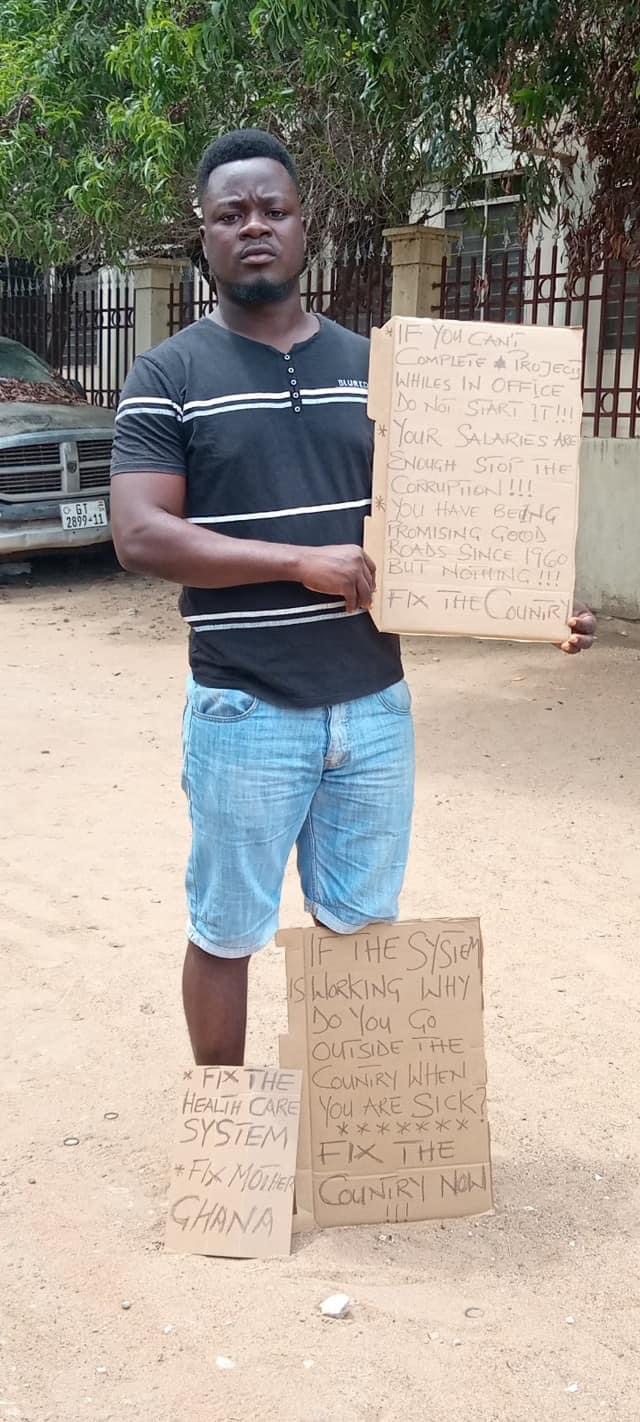 BLURED
* IF YOU CAN'T
COMPLETE A PROJECT
WHILES IN OFFICE
DO NOT START IT!!!
* YOUR SALARIES ARE
ENOUGH STOP THE
CORRUPTION!!!
* YOU HAVE BEING
PROMISING GOOD
ROADS SINCE 1960
BUT NOTHING!!!
FIX THE COUNTRY
GT
2899-11
IF THE SYSTEM
IS WORKING WHY
DO YOU GO
OUTSIDE THE
COUNTRY WHEN
YOU ARE SICK?
*******
FIX THE
COUNTRY NOW
!!!
* FIX THE
HEALTH CARE
SYSTEM
* FIX MOTHER
GHANA